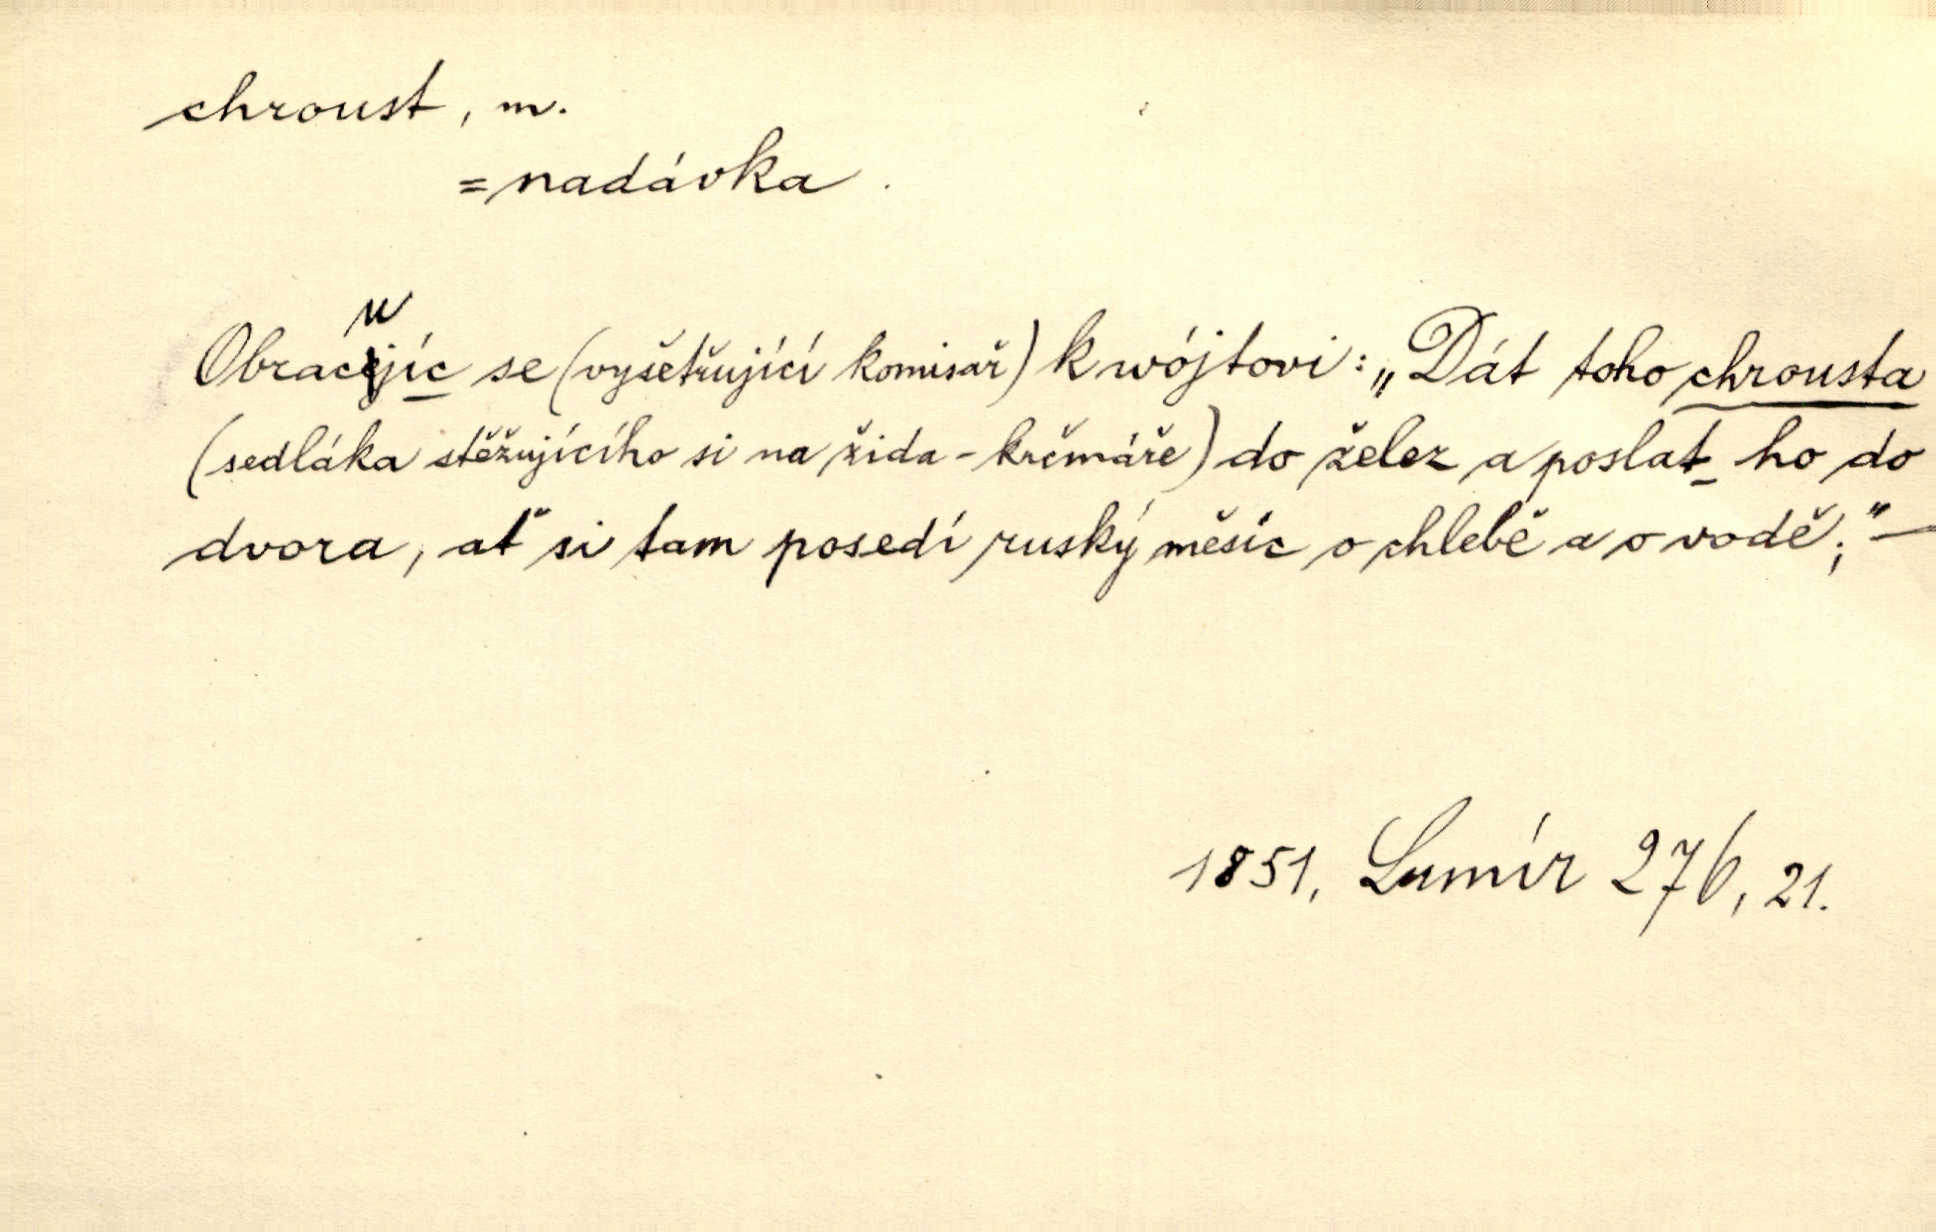 chroust, m.
= nadávka.
Obracujíc se (vyšetřující komisař) k wójtovi: „Dát toho chrousta
(sedláka stěžujícího si na žida-krčmáře) do želez a poslat ho do
dvora, ať si tam posedí ruský měsíc o chlebě a o vodě;" —
1851, Lumír 276, 21.